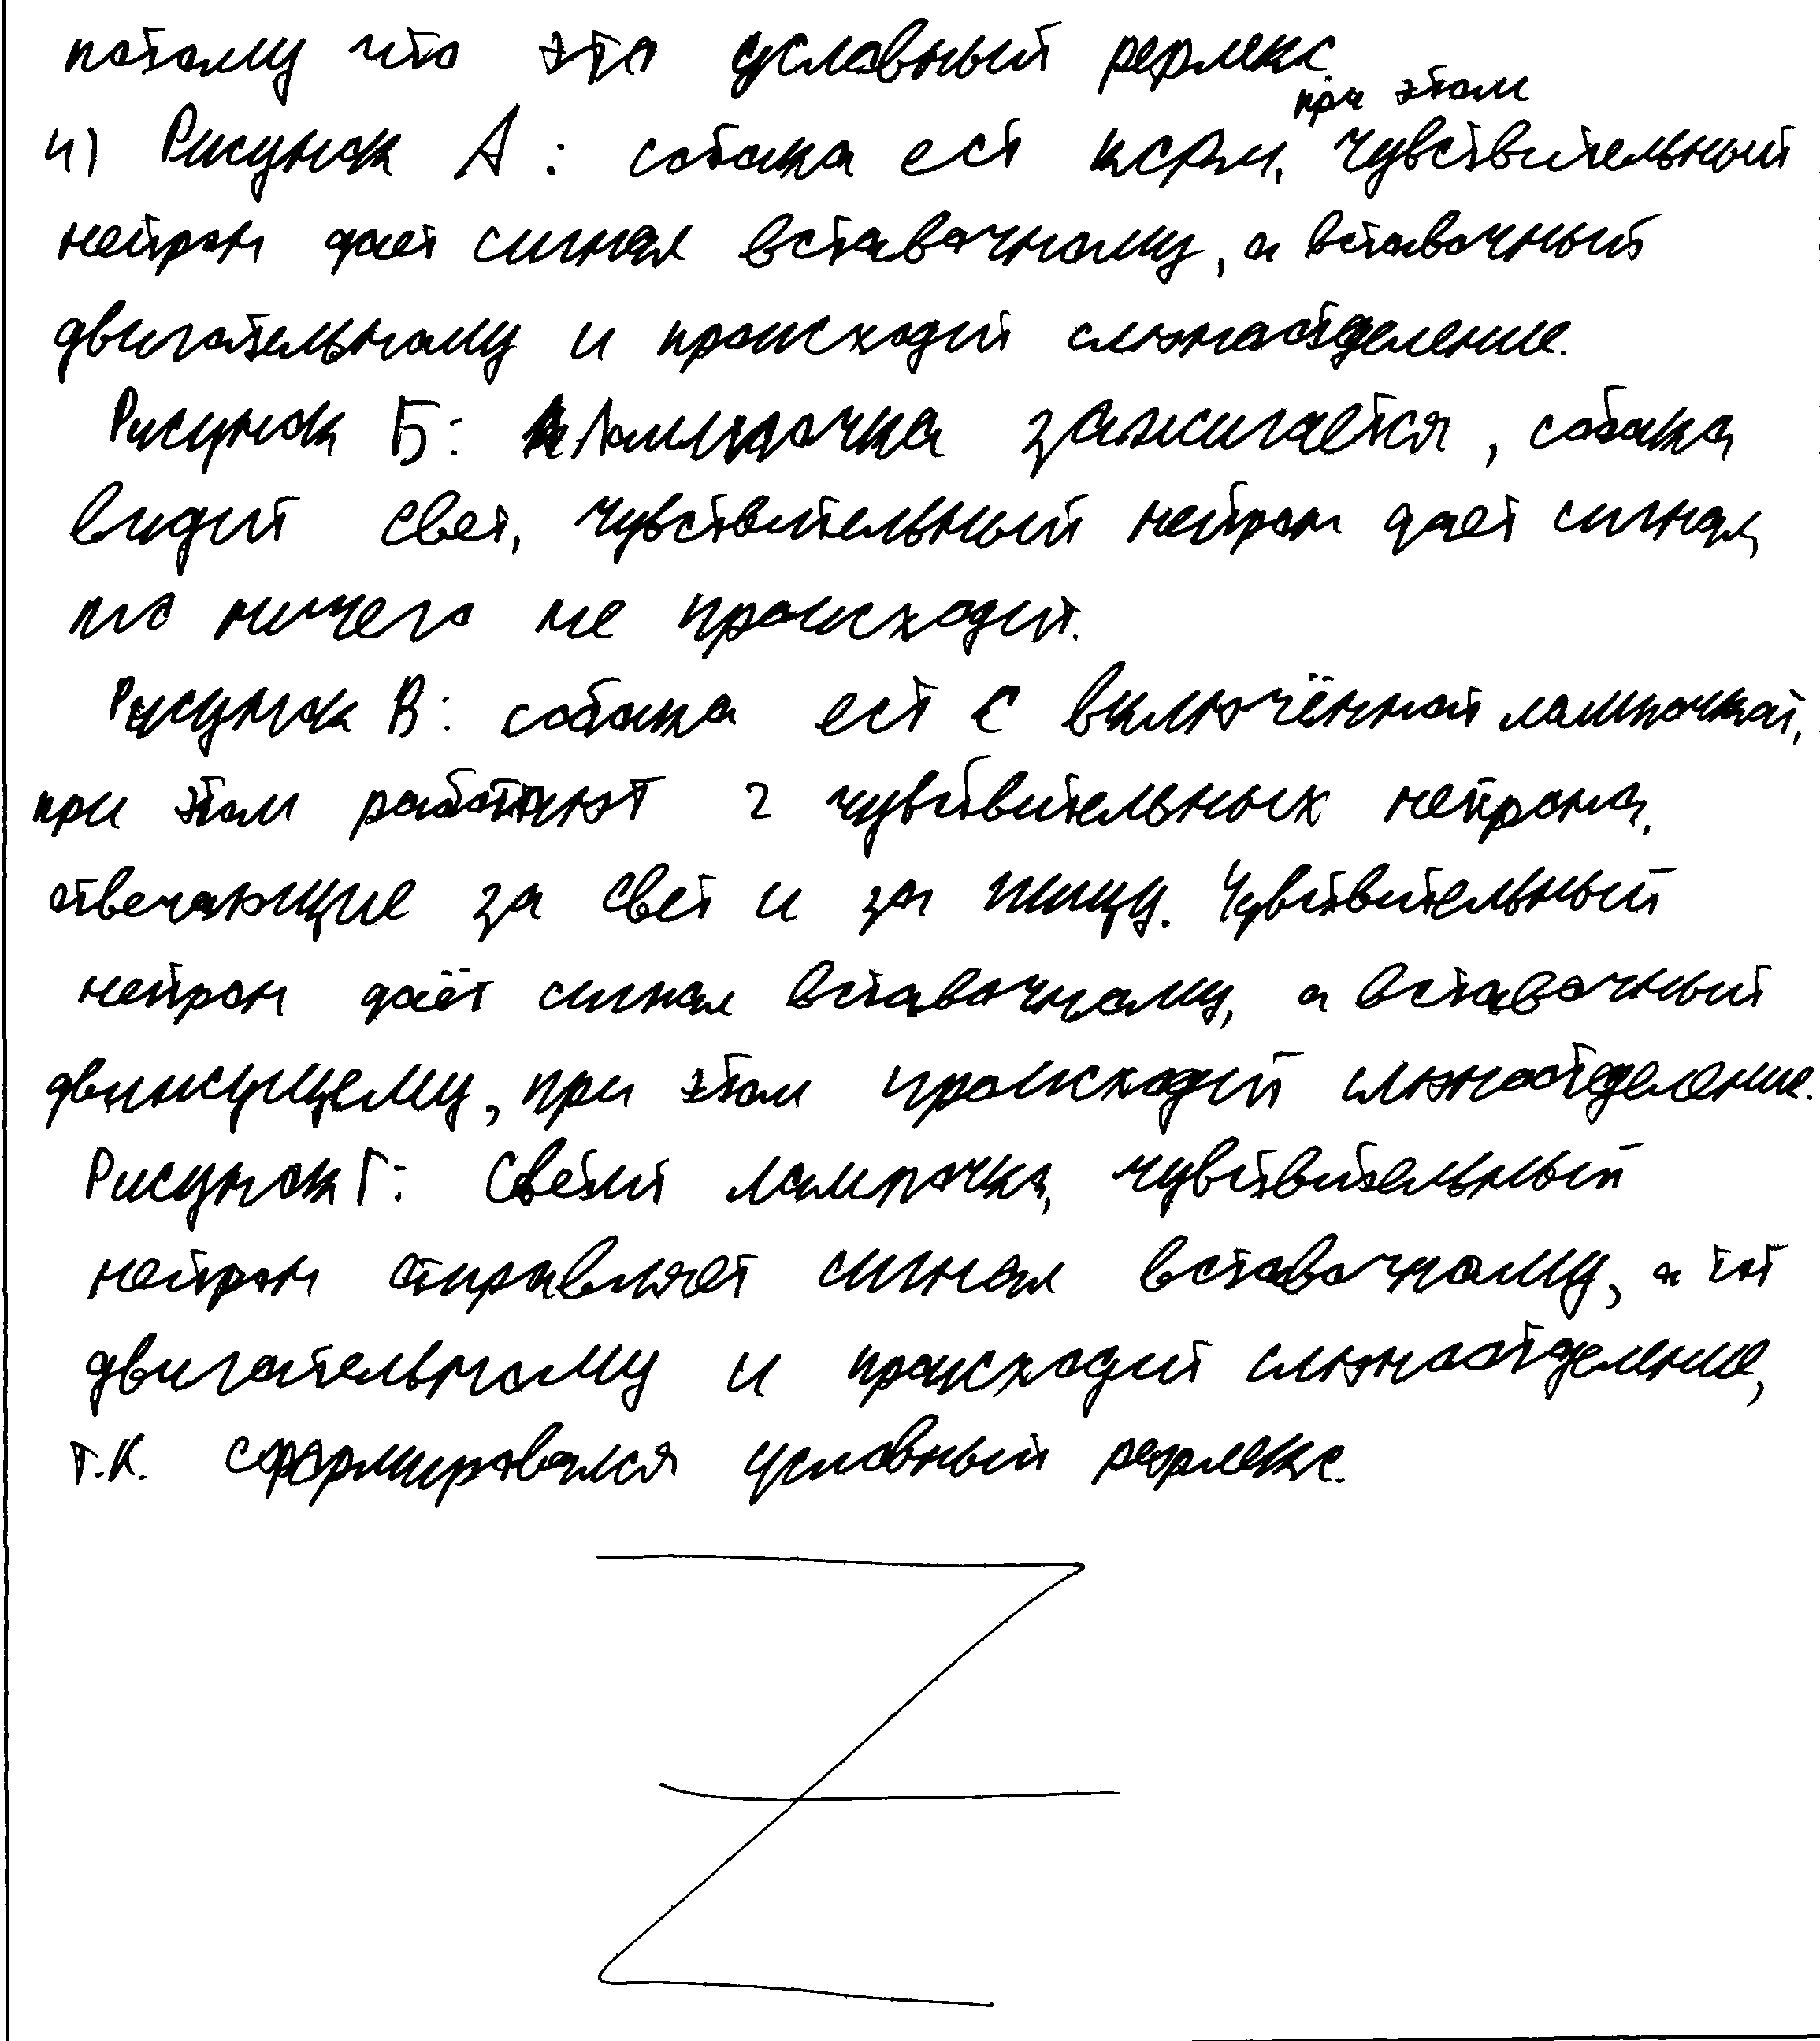 потому что это условный рефлекс.
при этом
4) Рисунок А: собака ест корм, чувствительный
нейрон дает сигнал вставочному, а вставочный
двигательному и происходит слюноотделение.
Рисунок Б: Лампочка зажигается, собака
видит свет, чувствительный нейрон дает сигнал,
но ничего не происходит.
Рисунок В: собака ест с включённой лампочкой,
при этом работают 2 чувствительных нейрона,
отвечающие за свет и за пищу. Чувствительный
нейрон даёт сигнал вставочному, а вставочный
движущему, при этом происходит слюноотделение.
Рисунок Г: Светит лампочка, чувствительный
нейрон отправляет сигнал вставочному, а тот
двигательному и происходит слюноотделение,
т.к. сформировался условный рефлекс.